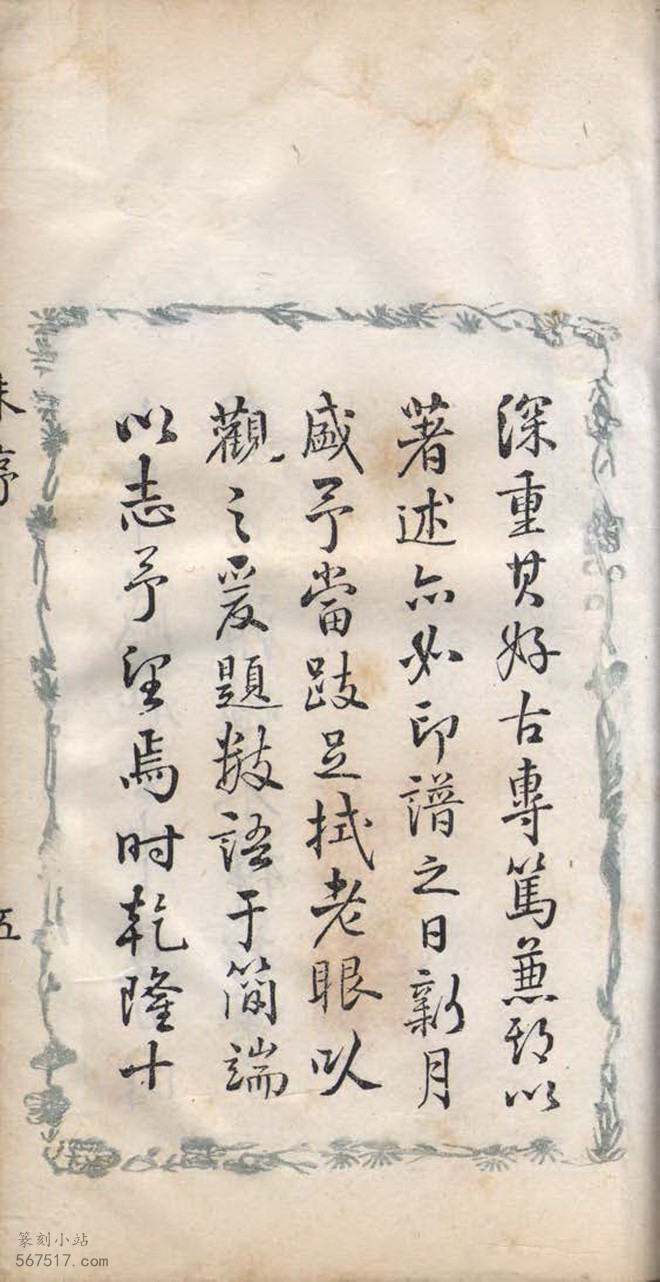 深重其好古專篤兼期以
著述亦如印譜之日新月
盛予當跂足拭老眼以
觀之爰題數語于簡端
以志予望焉时乾隆十
序
五
篆刻小站
567517.com